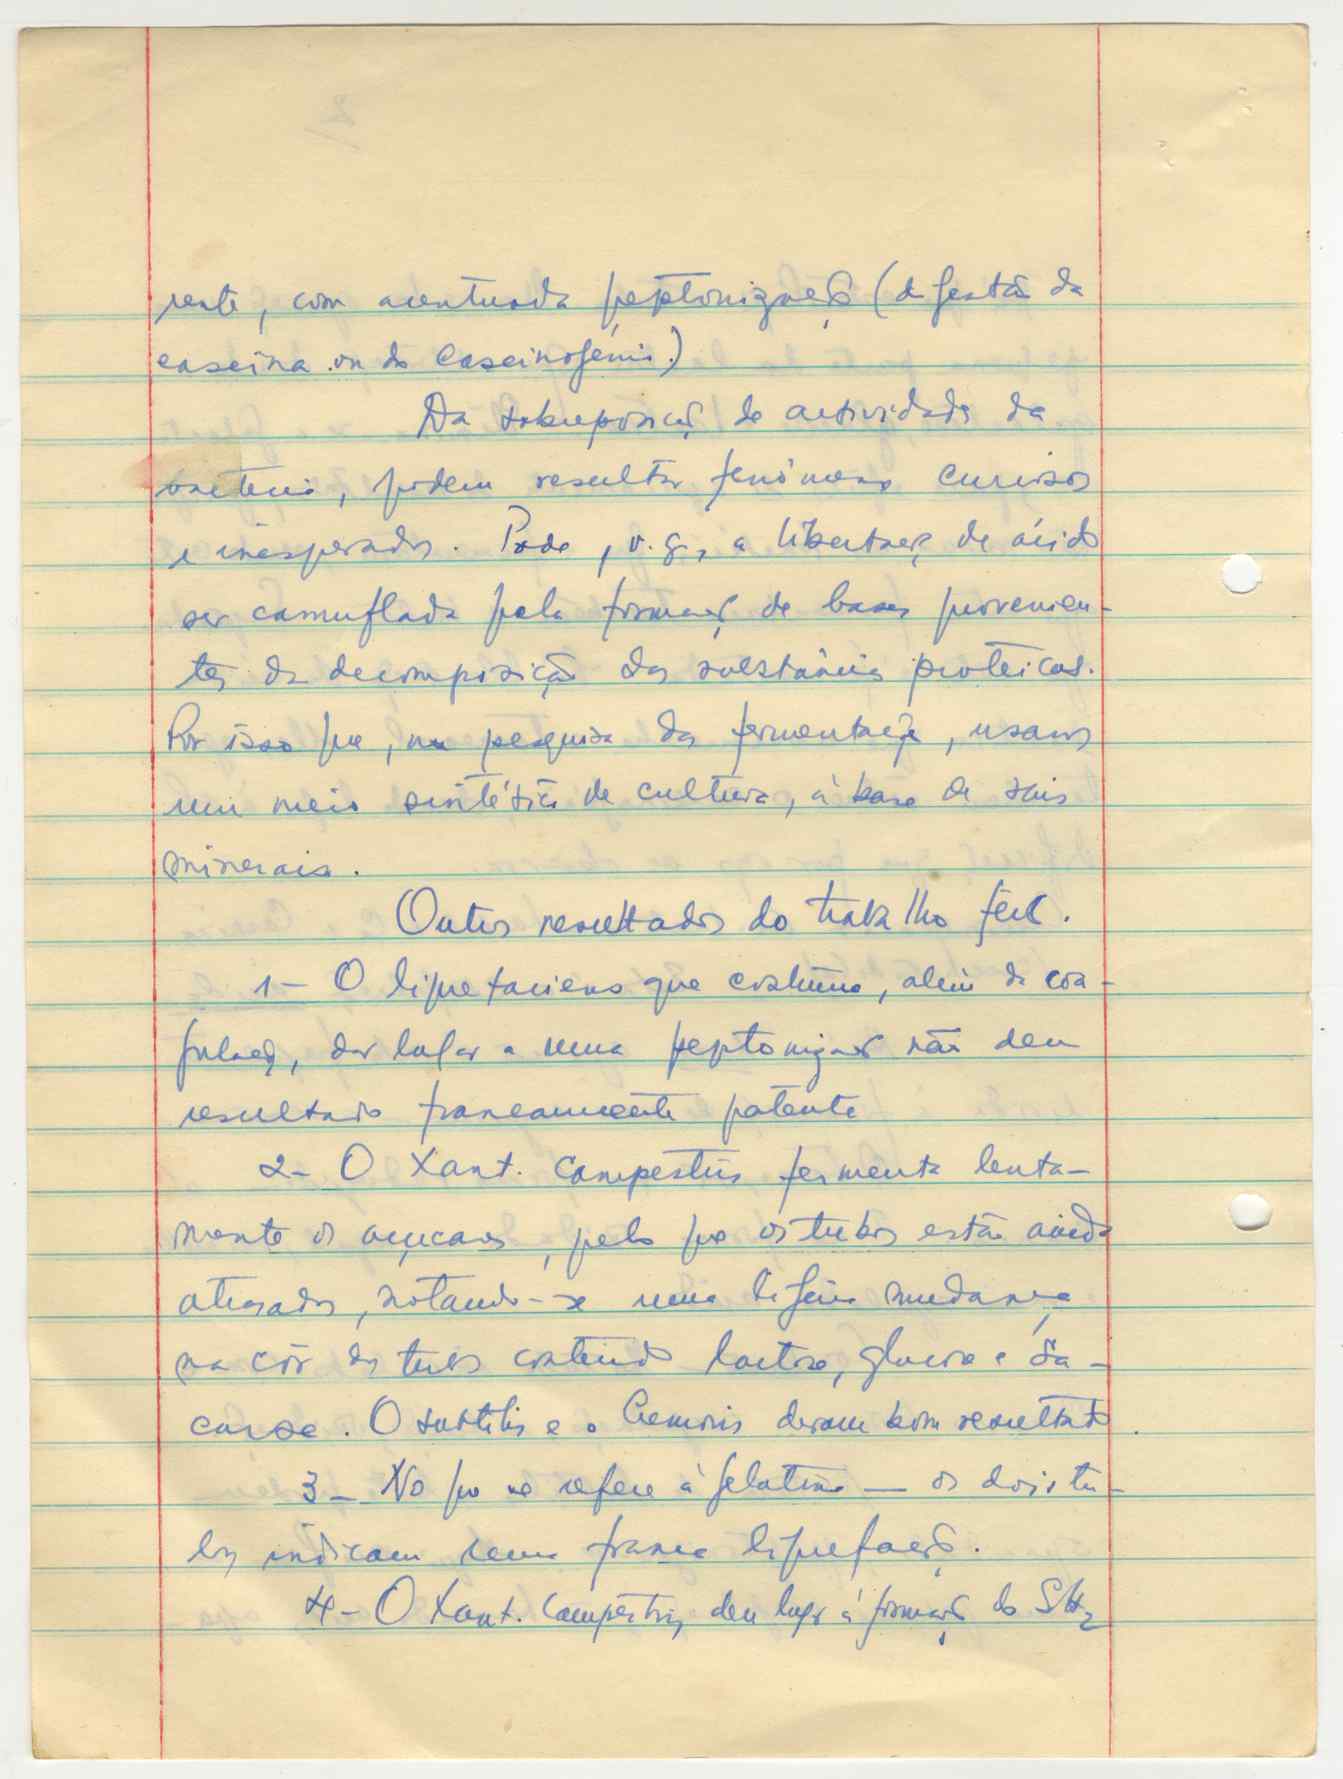 rente, com acentuada peptonização (digestão da
caseína ou do caseinogénio.)
Da sobreposição de actividades da
bactéria, podem resultar fenómenos curiosos
e inesperados. Pode, v.g., a libertação de ácido
ser camuflada pela formação de bases provenien-
tes da decomposição das substâncias proteicas.
Por isso que, na pesquisa da fermentação, usamos
um meio sintético de cultura, à base de sais
minerais.
Outros resultados do trabalho feito.
1- O liquefaciens que costuma, além da coa-
gulação, dar lugar a uma peptonização não deu
resultado francamente patente
2- O Xant. campestris fermenta lenta-
mente os açucares, pelo que os tubos estão ainda
atrasados, notando-se uma ligeira mudança
na côr dos tubos contendo lactose, glucose e Sa-
carose. O subtilis e o Cremoris deram bom resultado.
3- No que se refere à gelatina — os dois tu-
bos indicam uma franca liquefação.
4- O Xant. Campestris, deu lugar à formação do SH2